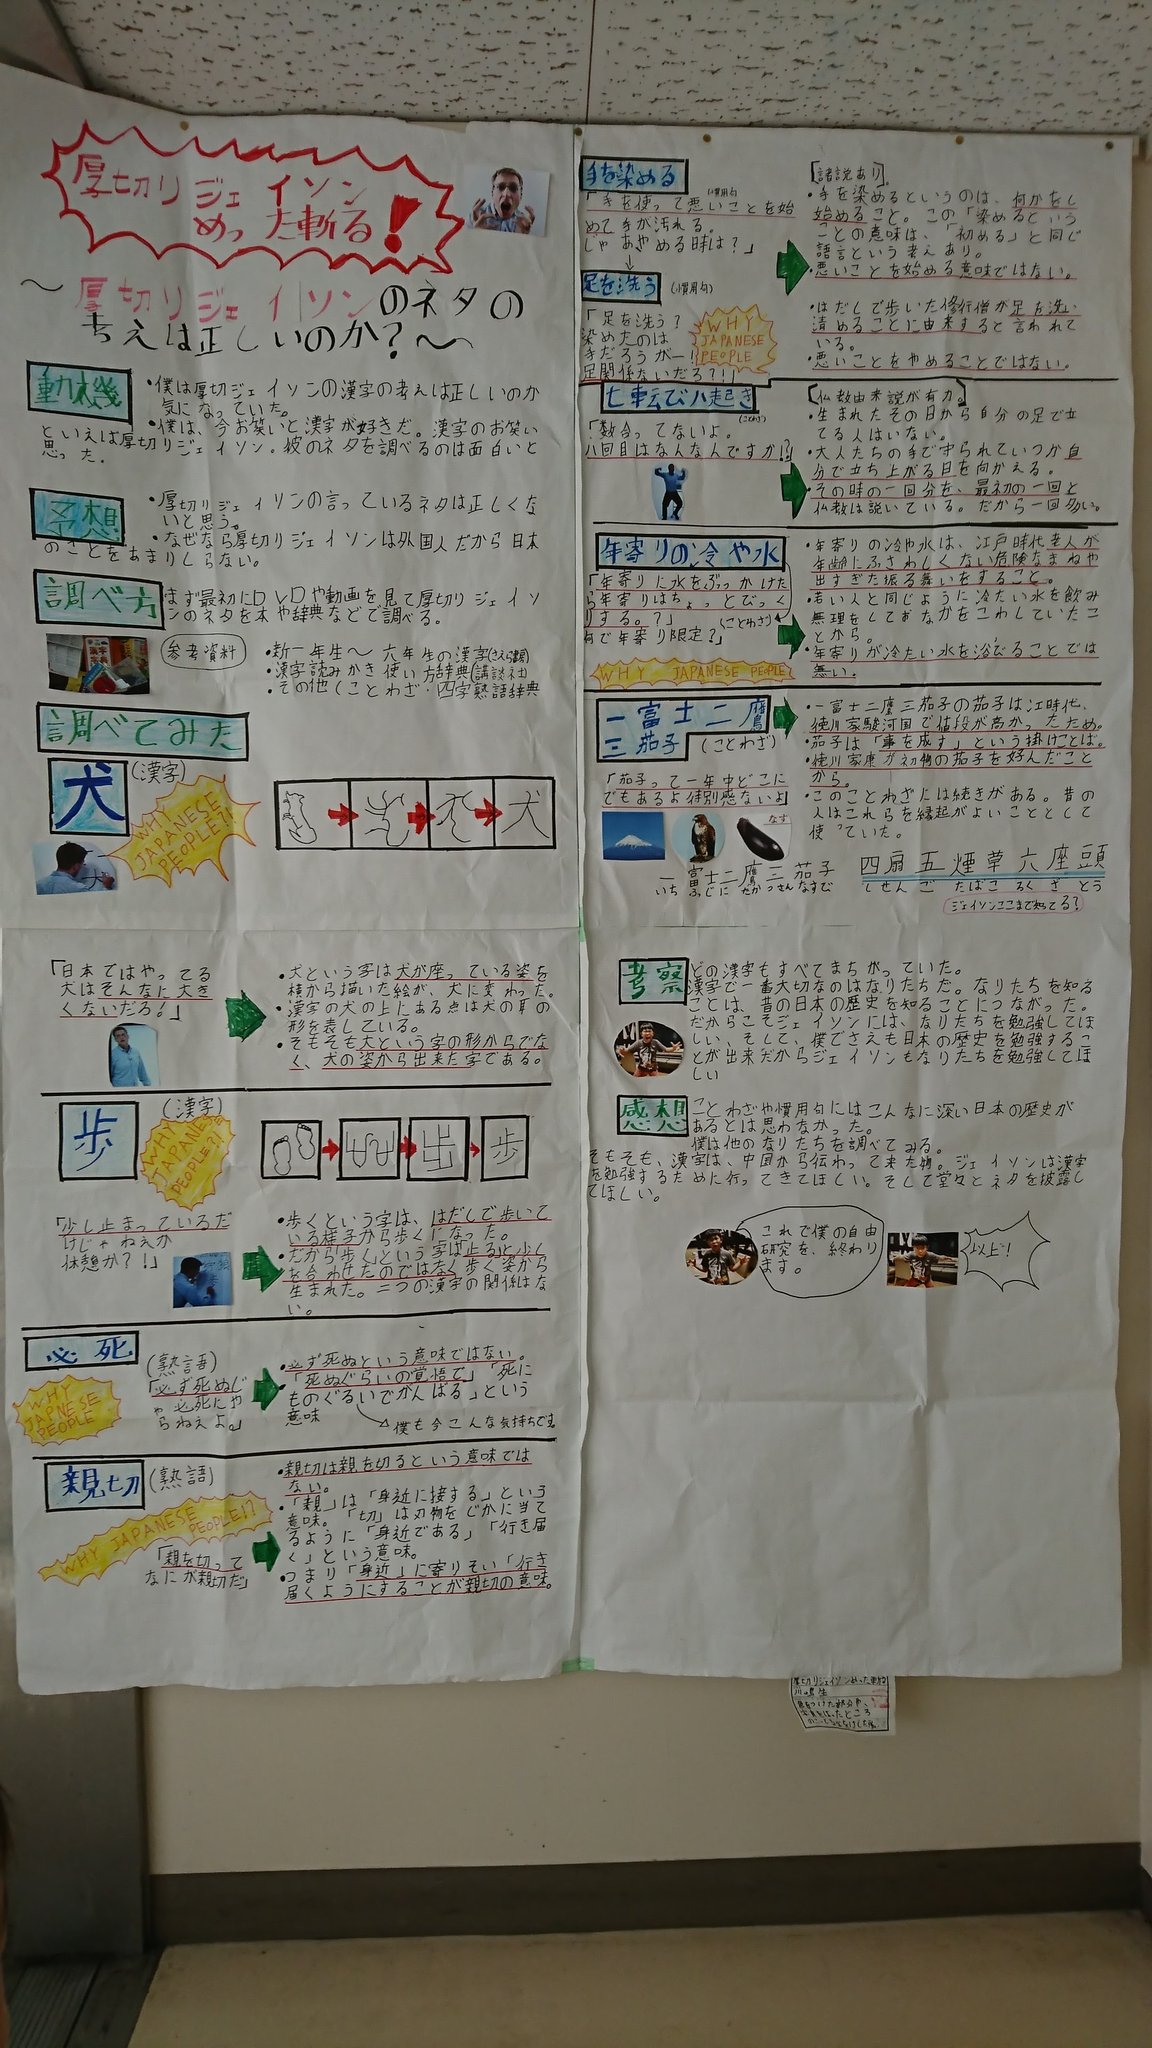 厚切りジェイソン
めった斬る!
～厚切りジェイソンのネタの
考えは正しいのか?～
動機
・僕は厚切ジェイソンの漢字の考えは正しいのか
気になっていた。
・僕は、今お笑いと漢字が好きだ。漢字のお笑い
といえば厚切りジェイソン。彼のネタを調べるのは面白いと
思った.
予想
・厚切りジェイソンの言っているネタは正しくな
いと思う。
・なぜなら厚切りジェイソンは外国人だから日本
のことをあまりしらない。
調べ方
まず最初にDVDや動画を見て厚切りジェイソ
ンのネタを本や辞典などで調べる。
参考資料
・新一年生～六年生の漢字
・漢字読みかき使い方辞典(講談社)
・その他(ことわざ・四字熟語辞典
調べてみた
犬
(漢字)
WHY
JAPANESE
PEOPLE?!
犬
「日本ではやってる
犬はそんなに大き
くないだろ!」
・犬という字は犬が座っている姿を
横から描いた絵が、犬に変わった。
・漢字の犬の上にある点は犬の耳の
形を表している。
・そもそも大という字の形からでな
く、犬の姿から出来た字である。
歩
(漢字)
WHY
JAPANESE
PEOPLE?!
出
歩
「少し止まっているだ
けじゃねえか
休憩か?!」
・歩くという字は、はだしで歩いて
いる様子から歩くになった。
・だから歩く」という字は「止る」と少く
を合わせたのではなく歩く姿から
生まれた。二つの漢字の関係はな
い。
必死
(熟語)
WHY
JAPNESE
PEOPLE
「必ず死ぬじ
ゃ必死にや
らねえよ。」
・必ず死ぬという意味ではない。
・「死ぬぐらいの覚悟で」「死に
ものぐるいでがんばる」という
意味
僕も今こんな気持ちです
親切
(熟語)
WHY JAPANESE
PEOPLE!?
「親を切って
なにが親切だ」
・親切は親を切るという意味では
ない。
・「親」は「身近に接する」という
意味。「切」は刃物をじかに当て
るように「身近である」「行き届
く」という意味。
・つまり「身近」に寄りそい「行き
届くようにすることが親切の意味。
手を染める
(慣用句
「手を使って悪いことを始
めて手が汚れる。
じゃあやめる時は?」
[諸説あり]
・手を染めるというのは、何かをし
始めること。この「染めるという
ことの意味は、「初める」と同じ
語言という考えあり。
・悪いことを始める意味ではない。
足を洗う
(慣用句)
「足を洗う?
染めたのは
手だろうがー!
足関係ないだろ?!」
WHY
JAPANESE
PEOPLE
・はだしで歩いた修行僧が足を洗い
清めることに由来すると言われて
いる。
・悪いことをやめることではない。
七転び八起き
(ことわざ)
「数合ってないよ。
八回目はなんなんですか!?」
[仏教由来説が有力。]
・生まれたその日から自分の足で立
てる人はいない。
・大人たちの手で守られていつか自
分で立ち上がる日を向かえる。
・その時の一回分を、最初の一回と
仏教は説いている。だから一回多い。
年寄りの冷や水
「年寄りに水をぶっかけた
ら年寄りはちょっとびっく
りする。?」
(ことわざ)
何で年寄り限定?」
WHY JAPANESE PEOPLE
・年寄りの冷や水は、江戸時代老人が
年齢にふさわしくない危険なまねや
出すぎた振る舞いをすること。
・若い人と同じように冷たい水を飲み
無理をしておなかをこわしていたこ
とから。
・年寄りが冷たい水を浴びることでは
無い。
一富士二鷹
三茄子
(ことわざ)
「茄子って一年中どこに
でもあるよ特別感ないよ」
なす
一富士二鷹三茄子
いちふじにたかさんなすび
・一富士二鷹三茄子の茄子は江時代、
徳川家駿河国で値段が高かったため。
・茄子は「事を成す」という掛けことば。
・徳川家康が初物の茄子を好んだこと
から。
・このことわざには続きがある。昔の
人はこれらを縁起がよいこととして
使っていた。
四扇五煙草六座頭
しせんごたばころくざとう
ジェイソンここまで知ってる?
考察
どの漢字もすべてまちがっていた。
漢字で一番大切なのはなりたちだ。なりたちを知る
ことは、昔の日本の歴史を知ることにつながった。
だからこそジェイソンには、なりたちを勉強してほ
しい、そして、僕でさえも日本の歴史を勉強するこ
とが出来だからジェイソンもなりたちを勉強してほ
しい
感想
ことわざや慣用句にはこんなに深い日本の歴史が
あるとは思わなかった。
僕は他のなりたちを調べてみる。
そもそも、漢字は、中国から伝わって来た物。ジェイソンは漢字
を勉強するために行ってきてほしい。そして堂々とネタを披露し
てほしい。
これで僕の自由
研究を、終わり
ます。
以上!
厚切りジェイソンめった斬り